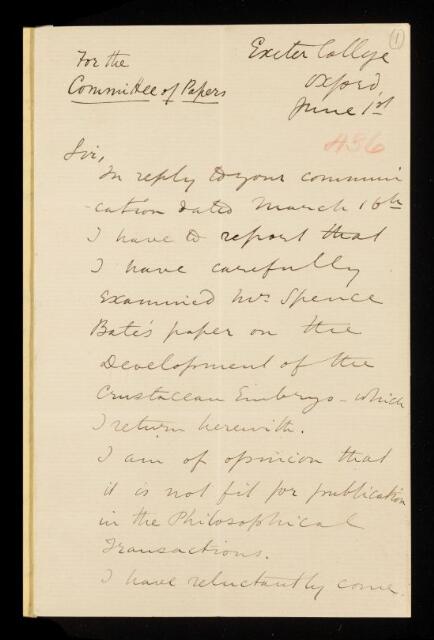 (1)
For the
Committee of Papers
Exeter College
Oxford
June 1st
436
Sir,
In reply to your communi
-cation dated March 16th
I have to report that
I have carefully
examined Mr Spence
Bate's paper on the
Development of the
Crustacean Embryo - which
I return herewith.
I am of opinion that
it is not fit for publication
in the Philosophical
Transactions.
I have reluctantly come